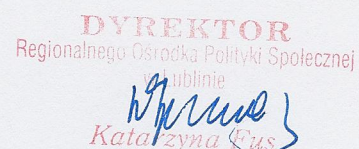 DYREKTOR
Regionalnego Ośrodka Polityki Społecznej
w Lublinie
Katarzyna Fus